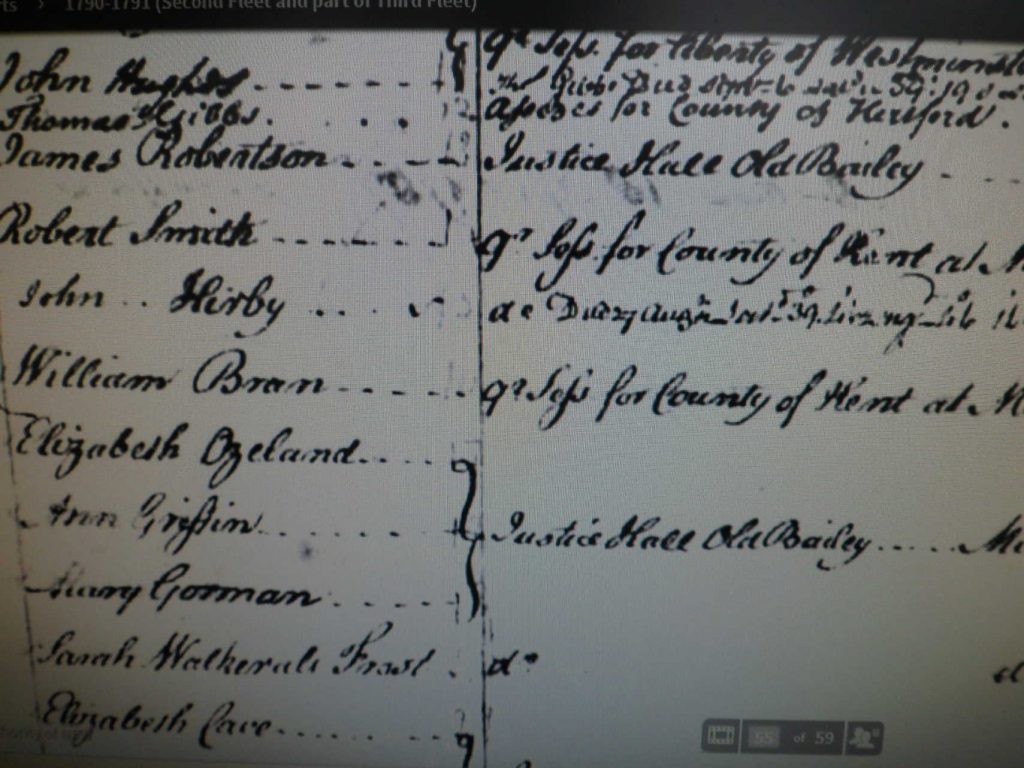 rts > 1790-1791 (Second Fleet and part of Third Fleet)
qr Sess. for liberty of Westminste
John Hughes
Thomas Gibbs . . . 12 Assizes for County of Hertford.
James Robertson Justice Hall Old Bailey
Robert Smith qr Sess for County of Kent at M
John Kirby do
William Bran qr Sess for County of Kent at M
Elizabeth Ozeland
Ann Griffin Justice Hall Old Bailey
Mary Gorman
Sarah Walker als Frost do d
Elizabeth Cave
55 of 59